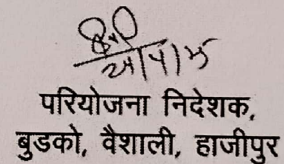 परियोजना निदेशक,
बुडको, वैशाली, हाजीपुर